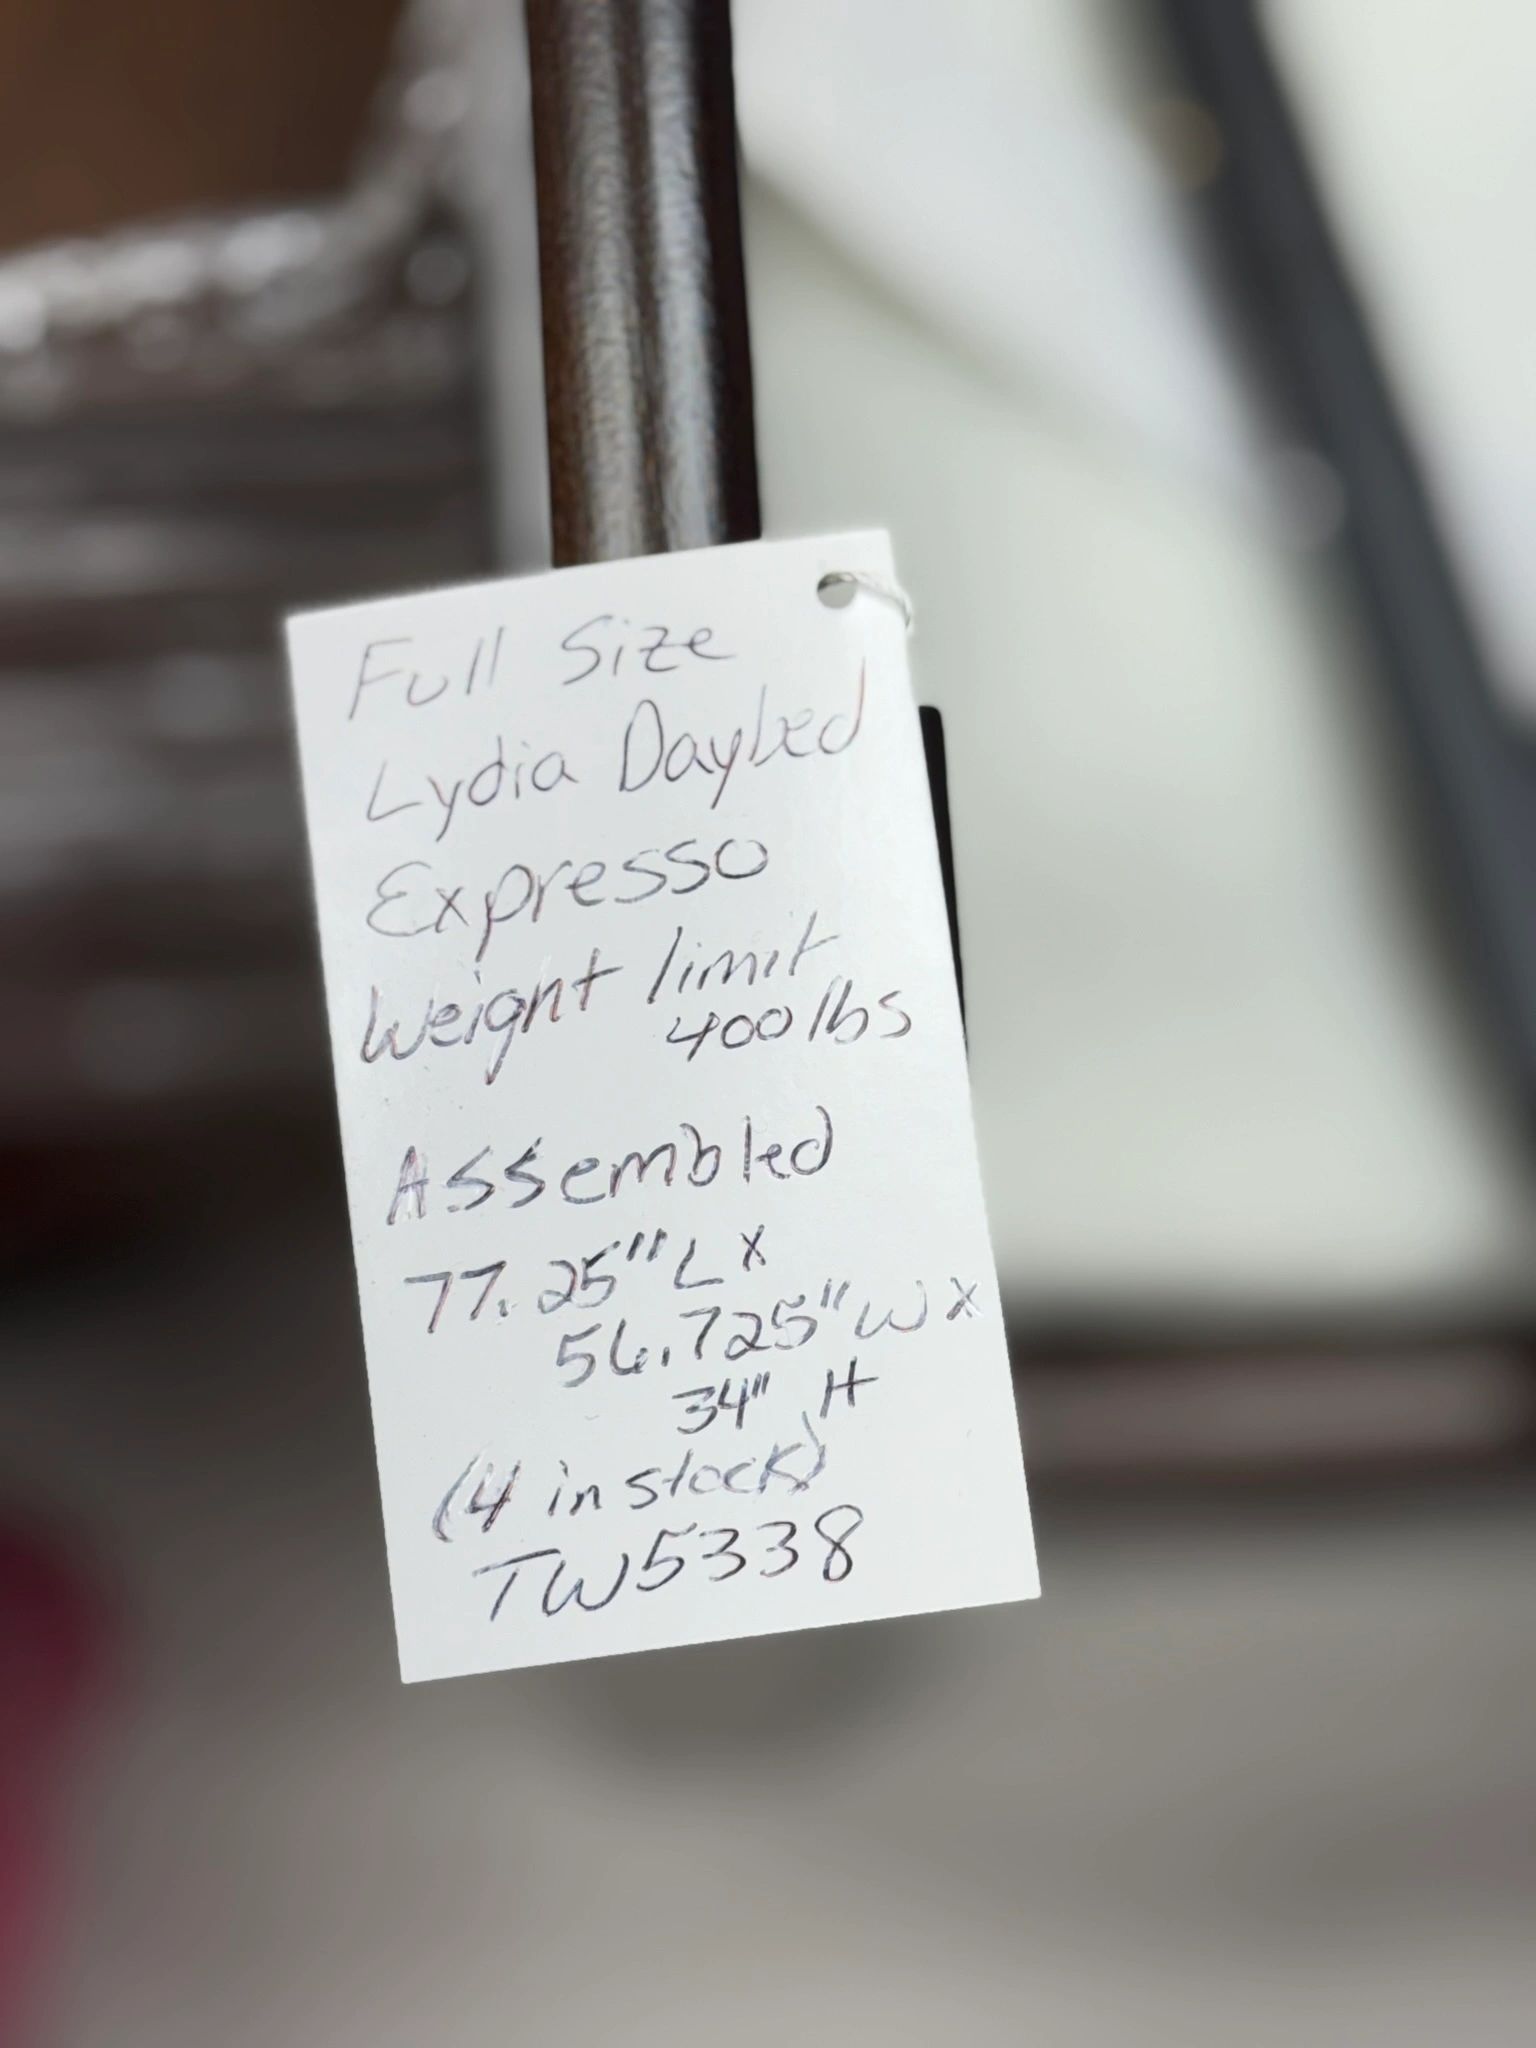 Full Size
Lydia Daybed
Expresso
Weight limit
400 lbs
Assembled
77.25" L x
56.725" W x
34" H
(4 in stock)
TW5338